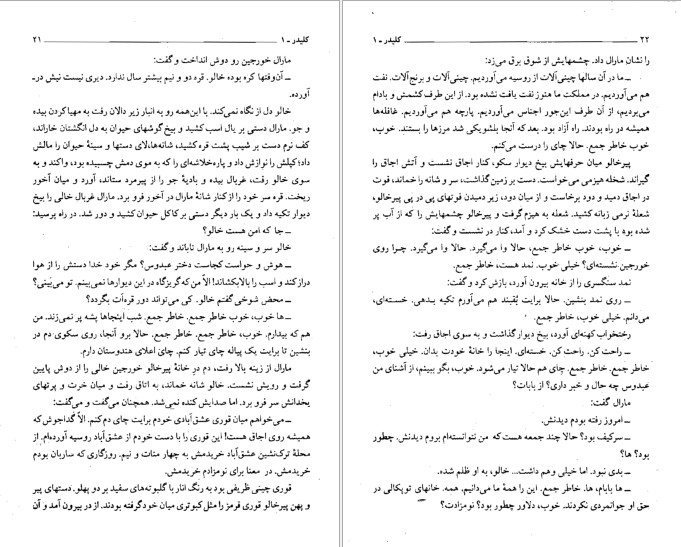 کلیدر - ۱ ۲۱
مارال خورجین رو دوش انداخت و گفت:
ــ آن‌وقتها کره بوده خالو. قره دو و نیم بیشتر سال ندارد. دیری نیست نیش در‌ـ
آورده.
خالو دل از نگاه نمی‌کند. با این‌همه رو به انبار زیر دالان رفت به مهیا کردن بیده
و جو. مارال دستی بر یال اسب کشید و بیخ گوشهای حیوان به دل انگشتان خاراند،
کف نرم دست بر شیب پشت قره کشید، شانه‌ها، لای دستها و سینهٔ حیوان را مالش
داد؛ کپلش را نوازش داد و پاره‌خلاشه‌ای را که به موی دمش چسبیده بود، واکند و به
سوی خالو رفت، غربال بیده و بادیهٔ جو را از پیرمرد ستاند، آورد و میان آخور
ریخت. قره سر خود را از کنار شانهٔ مارال در آخور فرو برد. مارال غربال خالی را بیخ
دیوار تکیه داد و یک بار دیگر دستی بر کاکل حیوان کشید و دور شد. در راه پرسید:
ــ جا که امن هست خالو؟
خالو سر و سینه رو به مارال تاباند و گفت:
ــ هوش و حواست کجاست دختر عبدوس؟ مگر خود خدا دستش را از هوا
دراز کند و اسب را بالا بکشاند! الاّ من که گریزگاه در این دیوارها نمی‌بینم. تو می‌بینی؟
ــ محض شوخی گفتم خالو. کی می‌تواند دور قره‌اَت بگردد؟
ــ ها خوب، خوب خاطر جمع. خاطر جمع. شب اینجاها پشه پر نمی‌زند. من
هم که بیدارم. خوب خاطر جمع. خاطر جمع. حالا برو آنجا، روی سکوی دم در
بنشین تا برایت یک پیاله چای تیار کنم. چای اعلای هندوستان دارم.
مارال از زینه بالا رفت، دم درِ خانهٔ پیرخالو خورجین خالی را از دوش پایین
گرفت و رویش نشست. خالو شانه خماند، به اتاق رفت و میان خرت و پرتهای
یخدانش سر فرو برد. اما صدایش کنده نمی‌شد. همچنان می‌گفت و می‌گفت:
ــ می‌خواهم میان قوری عشق‌آبادی خودم برایت چای دم کنم. الاّ گداجوش که
همیشه روی اجاق هست! این قوری را با دست خودم از عشق‌آباد روسیه آورده‌ام. از
محلهٔ ترک‌نشین عشق‌آباد خریدمش به چهار منات و نیم. روزگاری که ساربان بودم
خریدمش. در معنا برای نومزادم خریدمش.
قوری چینی ظریفی بود به رنگ انار با گلبوته‌های سفید بر دو پهلو. دستهای پیر
و پهن پیرخالو قوری قرمز را مثل کبوتری میان خود گرفته بودند. از در بیرون آمد و آن
۲۲ کلیدر - ۱
را نشان مارال داد. چشمهایش از شوق برق می‌زد:
ــ ما در آن سالها چینی‌آلات از روسیه می‌آوردیم. چینی‌آلات و برنج‌آلات. نفت
هم می‌آوردیم. در مملکت ما هنوز نفت یافت نشده بود. از این طرف کشمش و بادام
می‌بردیم؛ از آن طرف این‌جور اجناس می‌آوردیم. پارچه هم می‌آوردیم. غافله‌ها
همیشه در راه بودند. راه آزاد بود. بعد که آنجا بلشویکی شد مرزها را بستند. خوب،
خوب خاطر جمع. حالا چای را درست می‌کنم.
پیرخالو میان حرفهایش بیخ دیوار سکو، کنار اجاق نشست و آتش اجاق را
گیراند. شخله هیزمی می‌خواست. دست بر زمین گذاشت، سر و شانه را خماند، فوت
در اجاق دمید و دود برخاست و از میان دود، زیر دمیدن فوتهای پی در پی پیرخالو،
شعلهٔ نرمی زبانه کشید. شعله به هیزم گرفت و پیرخالو چشمهایش را که از آب پر
شده بود با پشت دست خشک کرد و آمد، کنار در نشست و گفت:
ــ خوب، خوب خاطر جمع، حالا وا می‌گیرد. حالا وا می‌گیرد. چرا روی
خورجین نشسته‌ای؟ خیلی خوب. نمد هست، خاطر جمع.
نمد سنگسری را از خانه بیرون آورد، بازش کرد و گفت:
ــ روی نمد بنشین. حالا برایت بُقبند هم می‌آورم تکیه بـدهی. خسته‌ای،
می‌دانم. خیلی خوب، خاطر جمع.
رختخواب کهنه‌ای آورد، بیخ دیوار گذاشت و به سوی اجاق رفت:
ــ راحت کن. راحت کن. خسته‌ای. اینجا را خانهٔ خودت بدان. خیلی خوب،
خاطر جمع. خاطر جمع. چای هم حالا تیار می‌شود. خوب، بگو ببینم، از آشنای من
عبدوس چه حال و خبر داری؟ از بابات؟
مارال گفت:
ــ امروز رفته بودم دیدنش.
ــ سرکیف بود؟ حالا چند جمعه هست که من نتوانسته‌ام بروم دیدنش. چطور
بود؟ ها؟
ــ بدی نبود. اما خیلی وهم داشت... خالو، به او ظلم شده.
ــ ها بابام، ها. خاطر جمع. این را همهٔ ما می‌دانیم. همه. خانهای توپکالی در
حق او جوانمردی نکردند. خوب، دلاور چطور بود؟ نومزادت؟